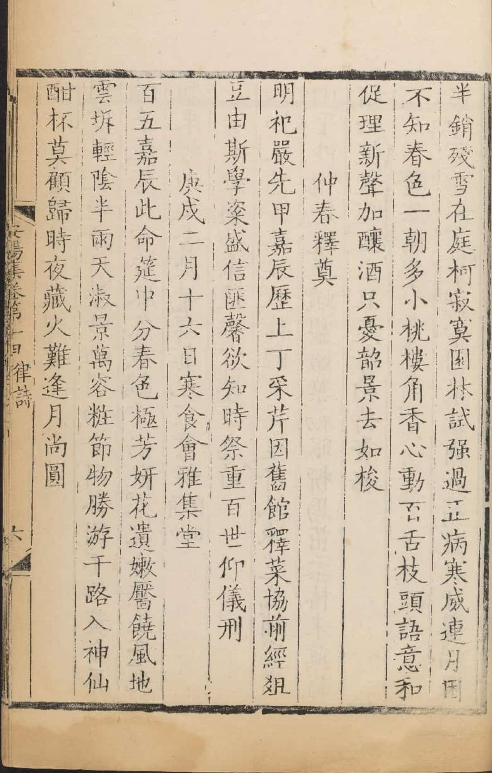 半銷殘雪在庭柯寂寞園林試强過正病寒威連月困
不知春色一朝多小桃樓角香心動百舌枝頭語意和
促理新聲加釀酒只憂韶景去如梭
仲春釋奠
明祀嚴先甲嘉辰歷上丁采芹因舊館釋菜協前經俎
豆由斯學粢盛信匪馨欲知時祭重百世仰儀刑
庚戌二月十六日寒食會雅集堂
百五嘉辰此命筵中分春色極芳妍花遺嫩靨饒風地
雲坼輕陰半雨天淑景萬容粧節物勝游千路入神仙
酣杯莫顧歸時夜藏火難逢月尚圓
陽集卷第十四 律詩 六